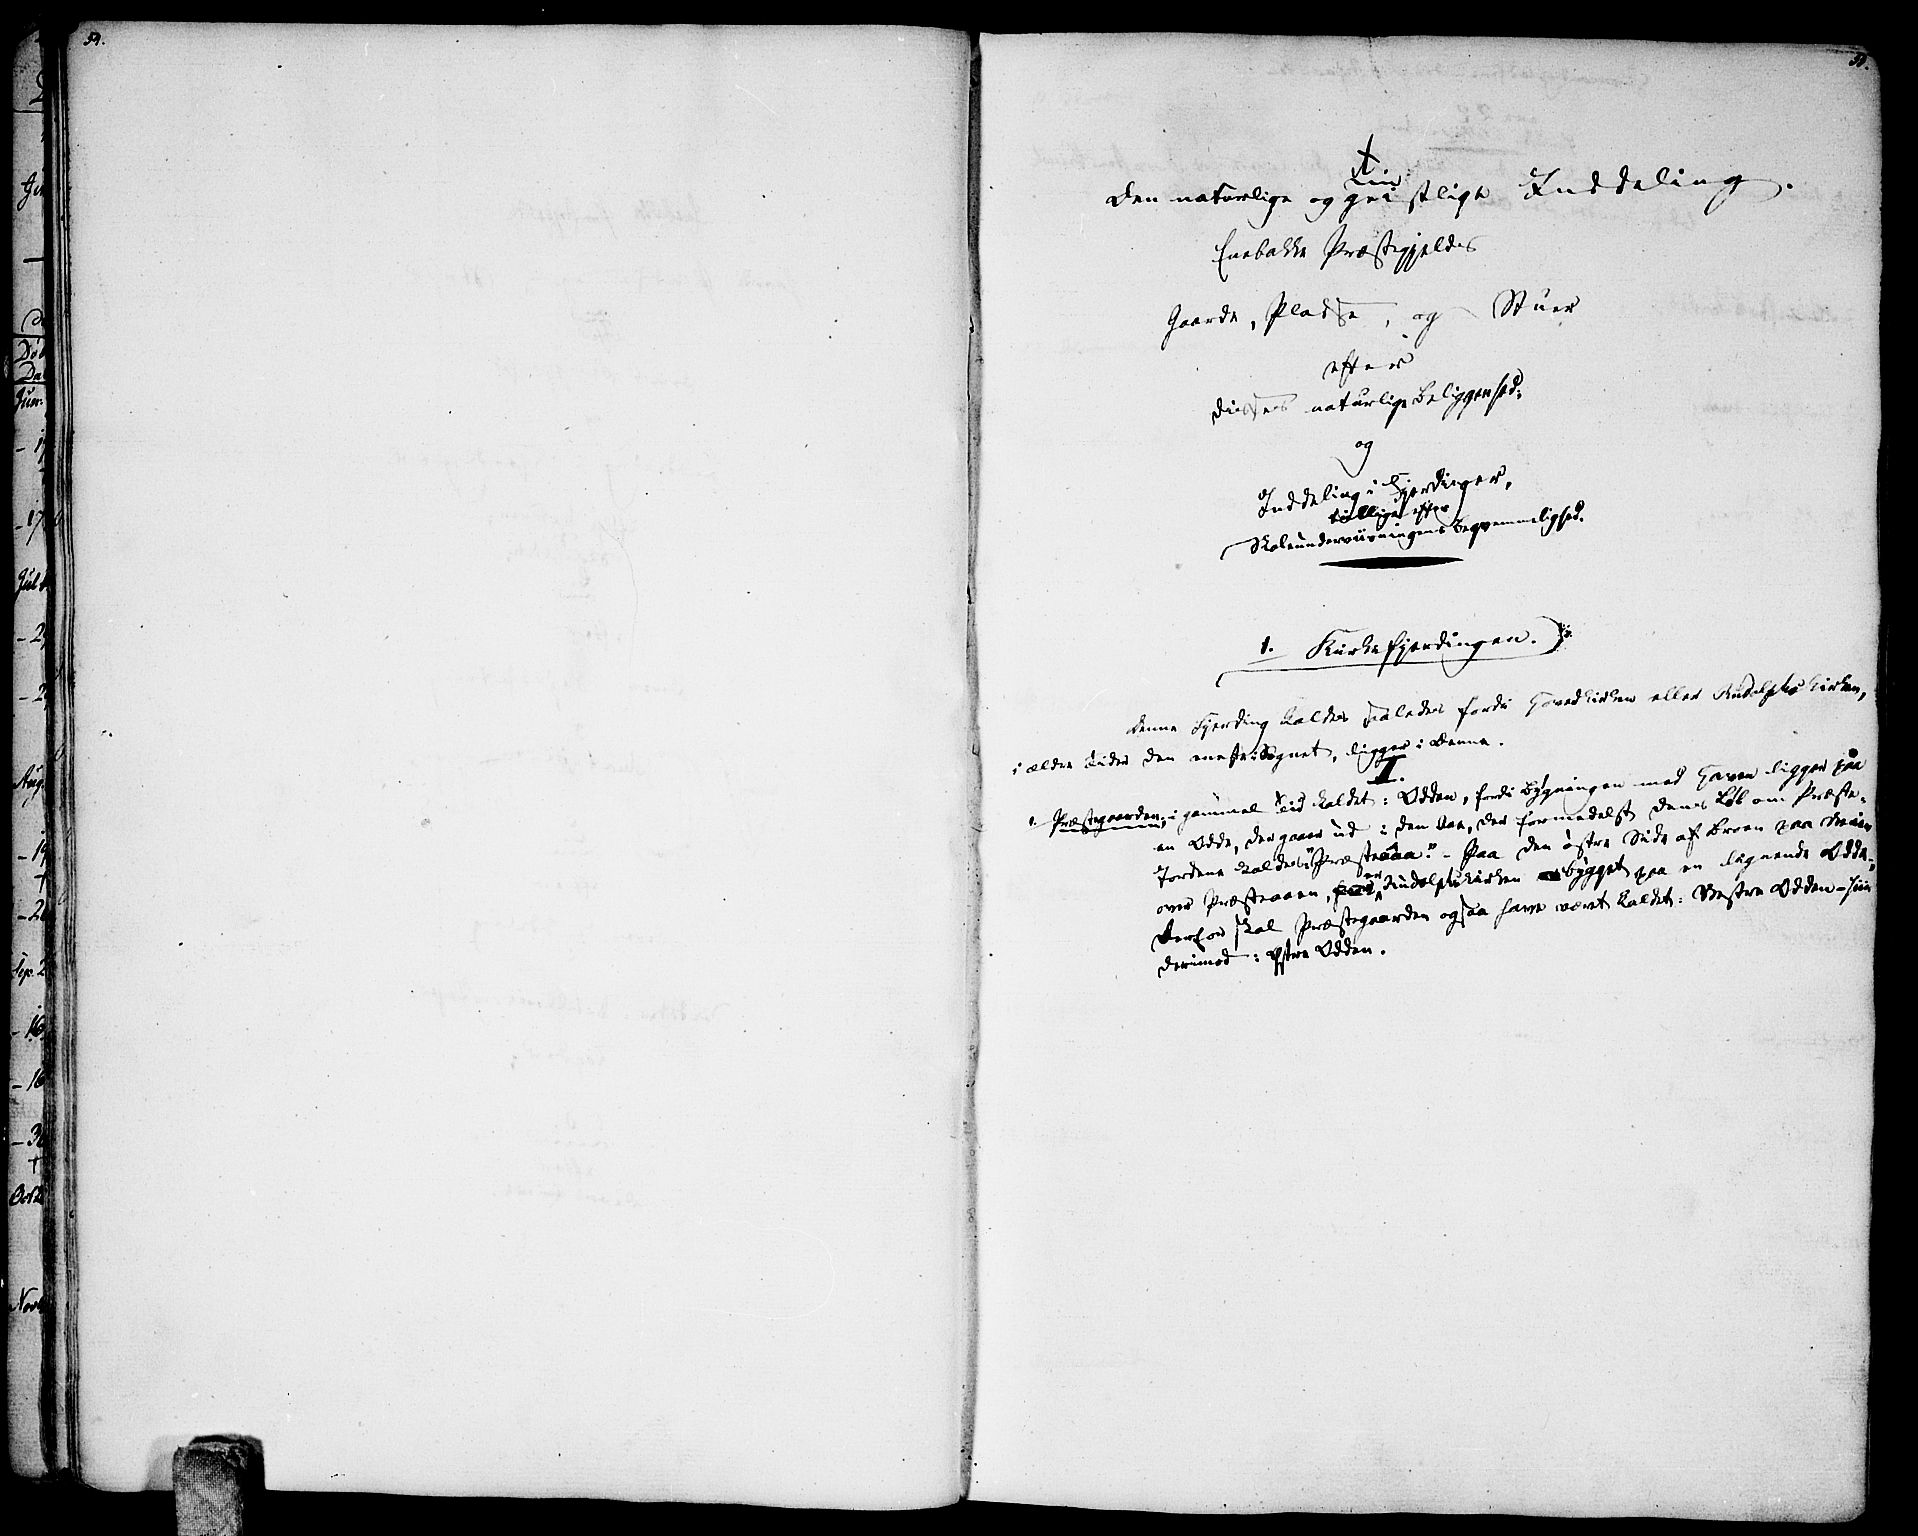 54.
54.
Den naturlige og geistlige Inddeling.
Enebakke Præstegjelds
Gaarde, Pladse, og Stuer
efter
disses naturlige Beliggenhed;
og
Inddeling i Fjerdinger,
tillige efter
Skoleunderviisningens Beqvemmelighed.
1. Kirkefjerdingen.
Denne Fjerding kaldes saaledes fordi Hovedkirken eller Rudolphskirken,
i ældre Tider den eneste i Sognet, ligger i Denne.
I.
1. Præstegaarden; i gammel Tid kaldet: Odden, fordi Bygningen med Haven ligger paa
en Odde, der gaaer ud i den Aae, der formedelst dens Løb om Præste-
Jordene kaldes: "Præsteaaa." - Paa den østre Side af Broen paa Veien
over Præsteaaen, er Rudolphskirken bygget paa en lignende Odde;
Derfor skal Præstegaarden ogsaa have været kaldet: Vestre Odden - hiin
derimod: Østre Odden.